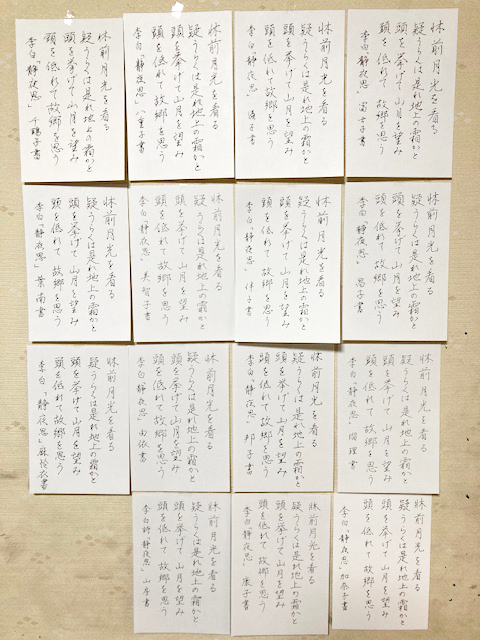 牀前月光を看る
疑うらくは是れ地上の霜かと
頭を挙げて山月を望み
頭を低れて故郷を思う
李白「静夜思」
牀前月光を看る
疑うらくは是れ地上の霜かと
頭を挙げて山月を望み
頭を低れて故郷を思う
李白「静夜思」
牀前月光を看る
疑うらくは是れ地上の霜かと
頭を挙げて山月を望み
頭を低れて故郷を思う
李白「静夜思」八重子書
牀前月光を看る
疑うらくは是れ地上の霜かと
頭を挙げて山月を望み
頭を低れて故郷を思う
李白「静夜思」千鶴子書
牀前月光を看る
疑うらくは是れ地上の霜かと
頭を挙げて山月を望み
頭を低れて故郷を思う
李白「静夜思」
牀前月光を看る
疑うらくは是れ地上の霜かと
頭を挙げて山月を望み
頭を低れて故郷を思う
李白「静夜思」
牀前月光を看る
疑うらくは是れ地上の霜かと
頭を挙げて山月を望み
頭を低れて故郷を思う
李白「静夜思」美智子書
牀前月光を看る
疑うらくは是れ地上の霜かと
頭を挙げて山月を望み
頭を低れて故郷を思う
李白「静夜思」葉南書
牀前月光を看る
疑うらくは是れ地上の霜かと
頭を挙げて山月を望み
頭を低れて故郷を思う
李白「静夜思」
牀前月光を看る
疑うらくは是れ地上の霜かと
頭を挙げて山月を望み
頭を低れて故郷を思う
李白「静夜思」邦子書
牀前月光を看る
疑うらくは是れ地上の霜かと
頭を挙げて山月を望み
頭を低れて故郷を思う
李白「静夜思」由依書
牀前月光を看る
疑うらくは是れ地上の霜かと
頭を挙げて山月を望み
頭を低れて故郷を思う
李白「静夜思」麻怜衣書
牀前月光を看る
疑うらくは是れ地上の霜かと
頭を挙げて山月を望み
頭を低れて故郷を思う
李白「静夜思」加奈子書
牀前月光を看る
疑うらくは是れ地上の霜かと
頭を挙げて山月を望み
頭を低れて故郷を思う
李白「静夜思」康子書
牀前月光を看る
疑うらくは是れ地上の霜かと
頭を挙げて山月を望み
頭を低れて故郷を思う
李白詩「静夜思」